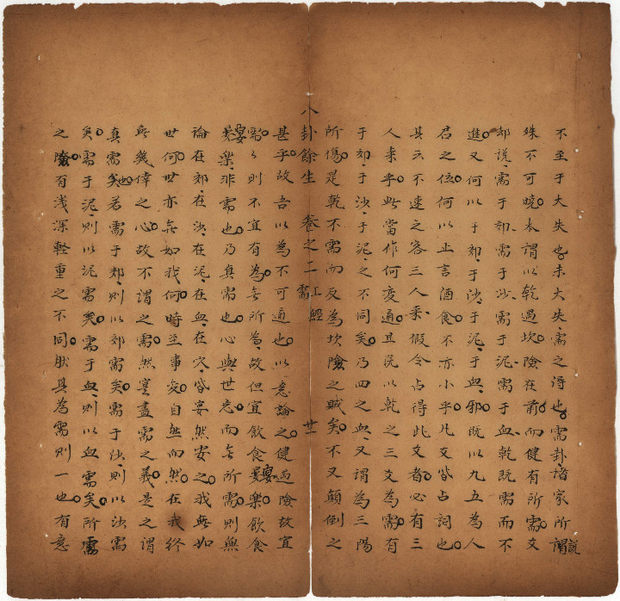 不至于大失也未大失需之得也需卦諸家所謂說
殊不可曉本謂以乾遇坎險在前而健有所需爻
却說需于郊需于沙需于泥需于血乾既需而不
進又何以于郊于沙于泥于血邪既以九五為人
君之位何以止言酒食不亦小乎凡爻皆占詞也
其云不速之客三人来假令占得此爻者必有三
人来乎此當作何変通且既以乾之三爻為需有
于郊于沙于泥之不同矣乃四之血又謂為三陽
所傷是乾不需而反為坎險之賊矣不又顛倒之
八卦餘生 卷之二 上經 需 廿一
甚乎故吾以為不可通也以意論之健遇險故宜
需〻則不宜有為無所營故但宜飲食宴樂飲食
宴樂非需也乃真需也心與世忘而無所需則無
論在郊在沙在泥在血在穴皆宴然安之我無如
世何世亦無如我何時至事変自然而然在我終
無幾倖之心故不謂之需然寔盡需之義是之謂
真需矣若需于郊則以郊需矣需于沙則以沙需
矣需于泥則以泥需矣需于血則以血需矣所需
之險有浅深軽重之不同然其為需則一也有意